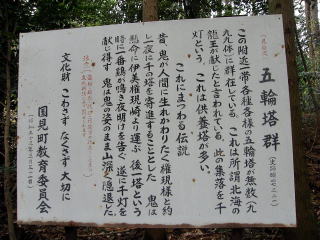 五輪塔群
この附近一帯各種各様の五輪塔が無数(九
九体)に群在している。これは所謂北海の
龍王が献じたと言われている。此の集落を千
灯という。これは供養塔が多い。
これにまつわる伝説
昔、鬼が人間に生れかわりたく権現様と約
一夜に千の塔を寄進することとした。鬼は
懸命に伊美権現崎より運ぶ。後一塔という
時に一番鶏が鳴き夜明けを告ぐ遂に千灯を
献じ得ず。鬼は鬼の姿のまま山深く隠退した。
文化財 こわさず なくさず 大切に
国見町教育委員会